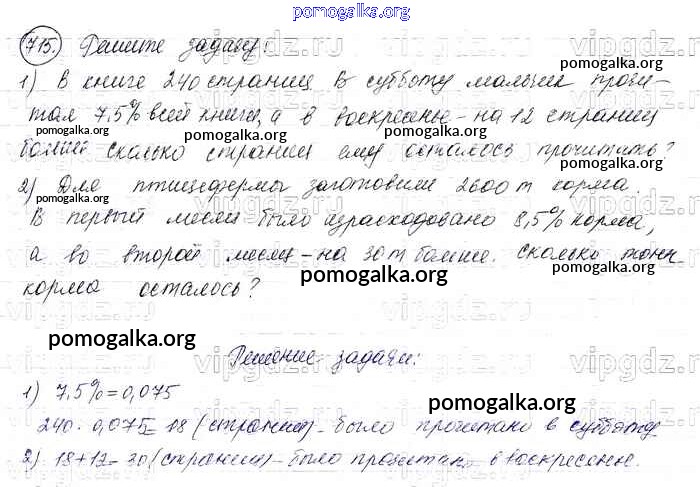 pomogalka.org
715. Решите задачу:
1) В книге 240 страниц. В субботу мальчик прочи-
тал 7,5% всей книги, а в воскресенье - на 12 страниц
pomogalka.org pomogalka.org pomogalka.org
больше сколько страниц ему осталось прочитать?
pomogalka.org pomogalka.org
2) Для птицефермы заготовили 2600 т корма.
В первый месяц было израсходовано 8,5% корма,
а во второй месяц - на 30 т больше. Сколько тонн
pomogalka.org
корма осталось?
pomogalka.org
Решение задачи:
1) 7,5% = 0,075
pomogalka.org
240 · 0,075 = 18 (страниц) - было прочитано в субботу
2) 18+12 = 30 (страниц) - было прочитано в воскресенье.
pomogalka.org
vipgdz.ru